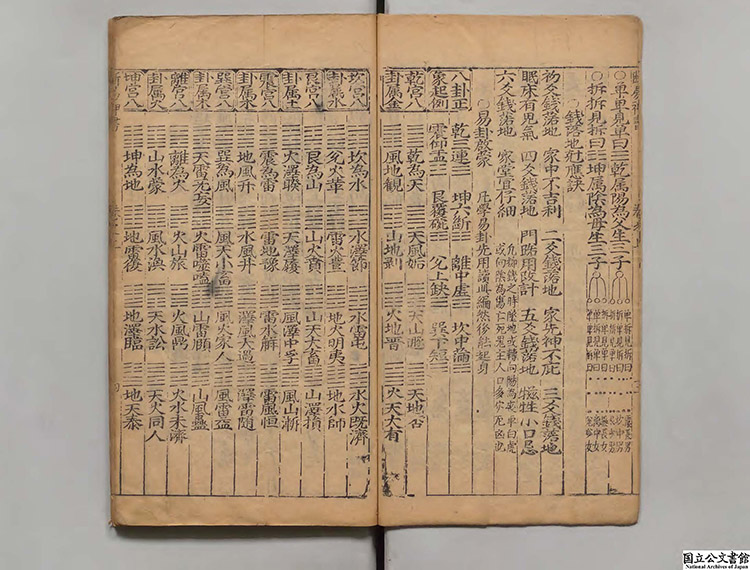 ○單單見單曰☰ 乾屬陽為父生三子
○拆拆見拆曰☷ 坤屬陰為母生三子
○錢落地尅應訣
初爻錢落地 家中不吉利 二爻錢落地 家先神不庇 三爻錢落地
眠床有兇氣 四爻錢落地 門路用改計 五爻錢落地 犧牲小口忌
六爻錢落地 家堂宜仔細
○易卦啟蒙 凡學易卦先用讀此編然後能起身
八卦正 乾三連☰ 坤六斷☷ 離中虛☲ 坎中滿☵
象起例 震仰盂☳ 艮覆碗☶ 兌上缺☱ 巽下短☴
乾宮八 乾為天 天風姤 天山遯 天地否
卦属金 風地觀 山地剝 火地晉 火天大有
坎宮八 坎為水 水澤節 水雷屯 水火既濟
卦属水 澤火革 雷火豐 地火明夷 地水師
艮宮八 艮為山 山火賁 山天大畜 山澤損
卦属土 火澤睽 天澤履 風澤中孚 風山漸
震宮八 震為雷 雷地豫 雷水解 雷風恒
卦属木 地風升 水風井 澤風大過 澤雷随
巽宮八 巽為風 風天小畜 風火家人 風雷益
卦属木 天雷无妄 火雷噬嗑 山雷頤 山風蠱
離宮八 離為火 火山旅 火風鼎 火水未濟
卦属火 山水蒙 風水渙 天水訟 天火同人
坤宮八 坤為地 地雷復 地澤臨 地天泰
国立公文書館
National Archives of Japan